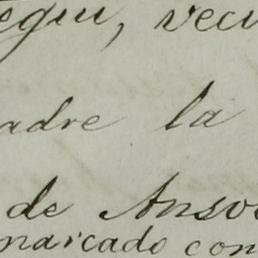 egui, veci
adre la
de Anso
marcado con